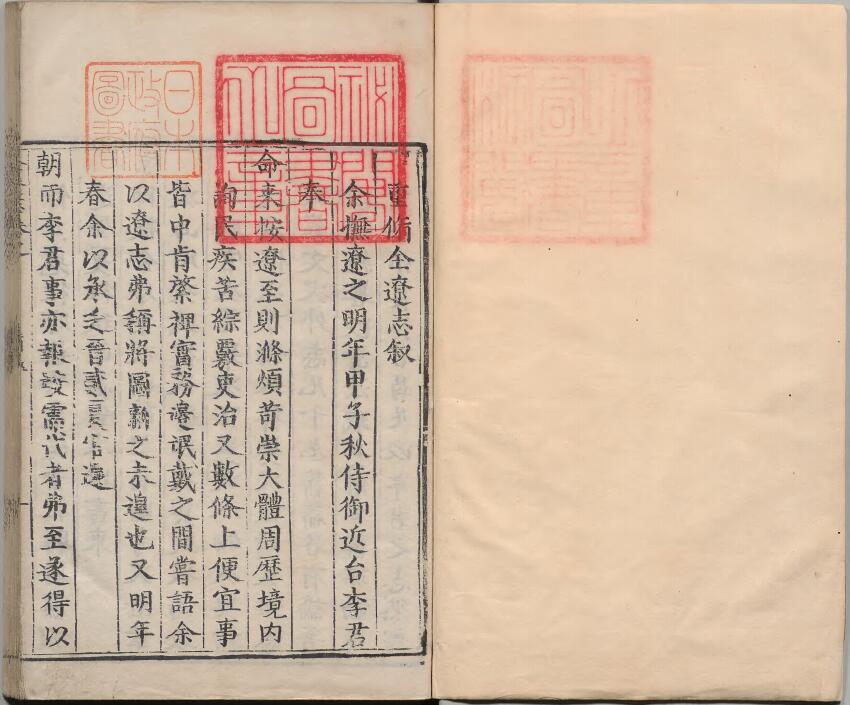 重脩全遼志叙
余撫遼之明年甲子秋侍御近台李君
奉
命来按遼至則滌煩苛崇大體周歷境内
詢民疾苦綜覈吏治又數條上便宜事
皆中肯綮裨務邊氓戴之間嘗語余
以遼志弗稱將圖新之未遑也又明年
春余以承乏晉貳夏官還
朝而李君事亦報竣代者弗至遂得以
秘閣圖書之章
日本政府圖書